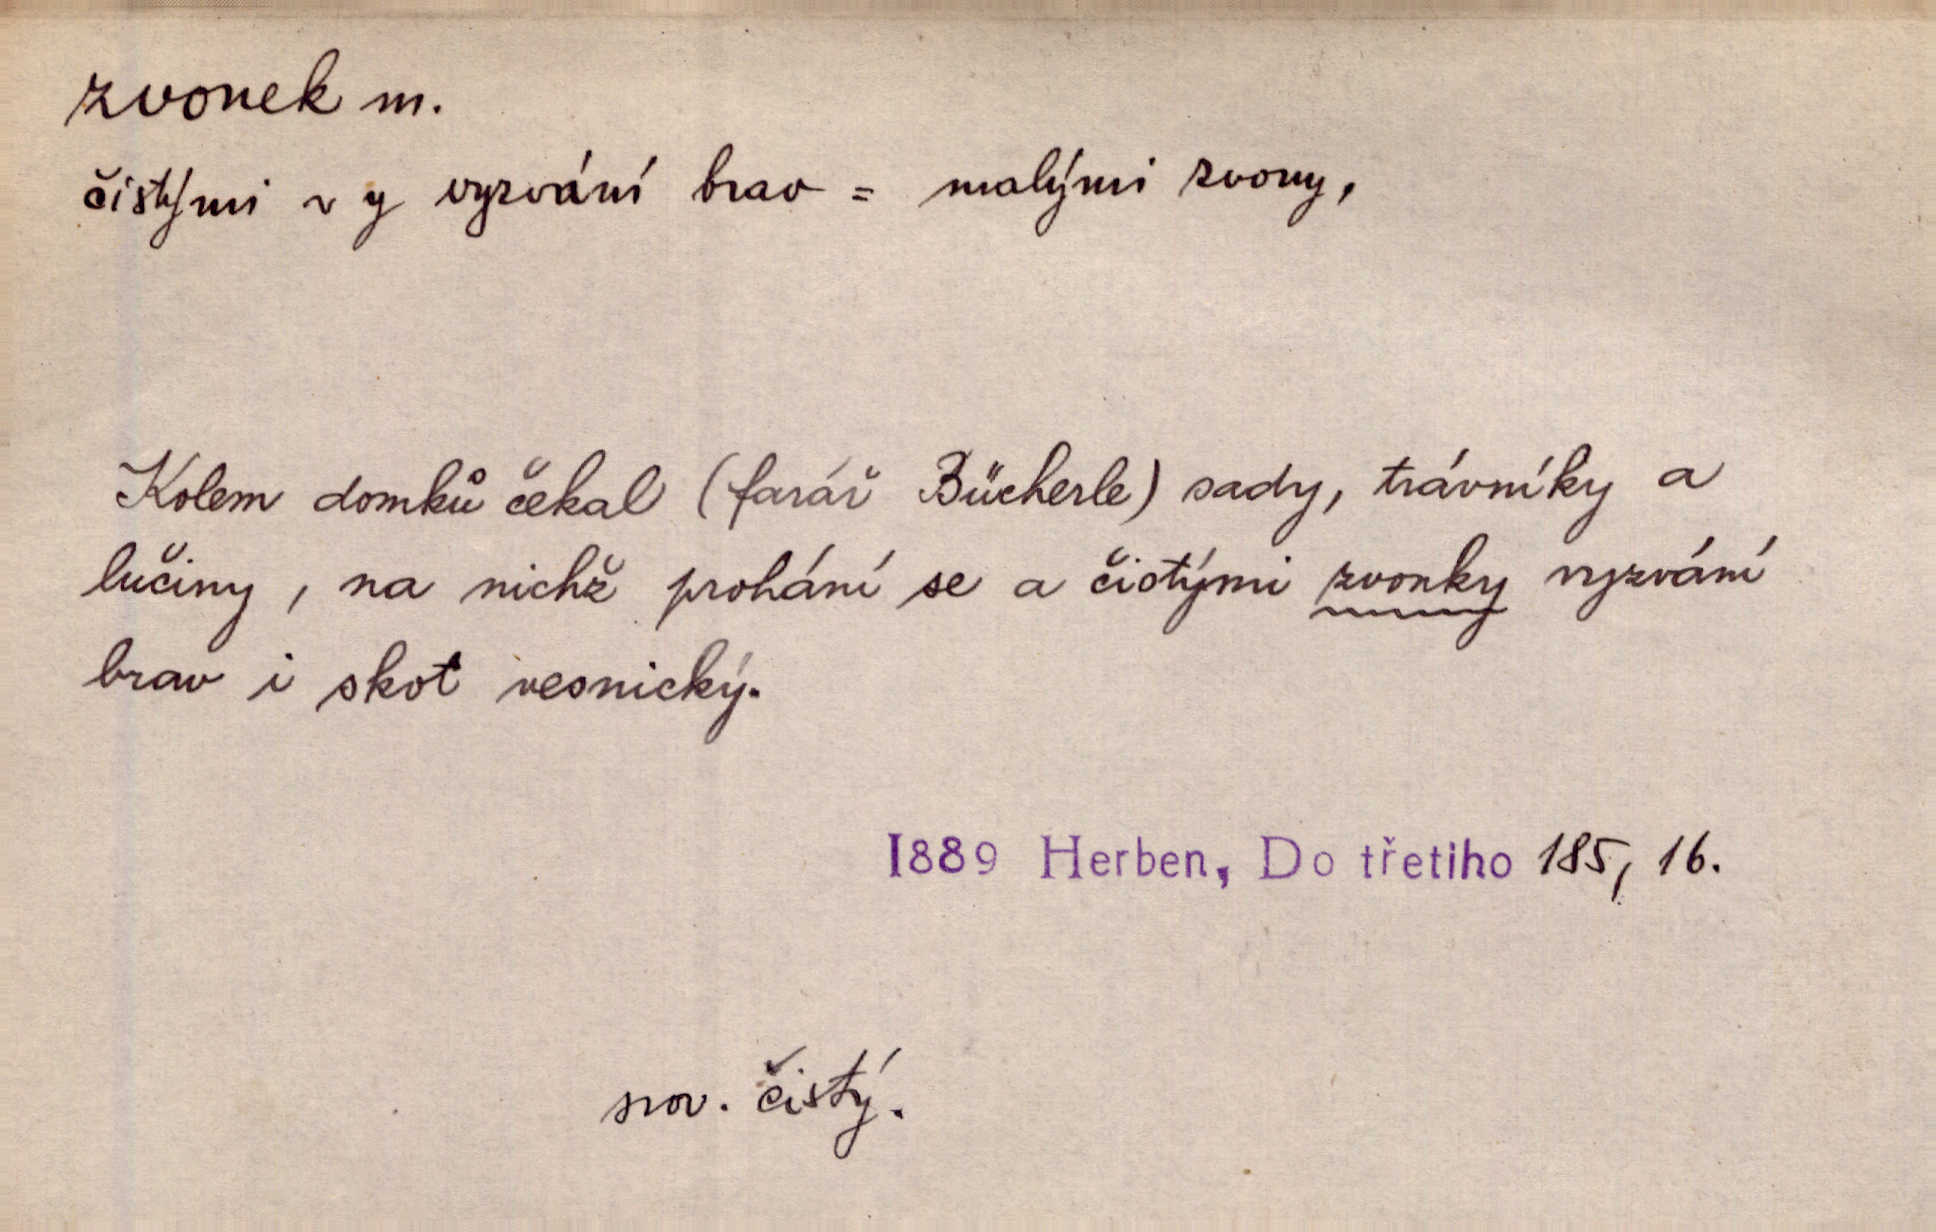 zvonek m.
čistými v y vyzvání brav = malými zvony,
Kolem domků čekal (farář Bücherle) sady, trávníky a
lučiny, na nichž prohání se a čistými zvonky vyzvání
brav i skot vesnický.
1889 Herben, Do třetiho 185, 16.
srov. čistý.